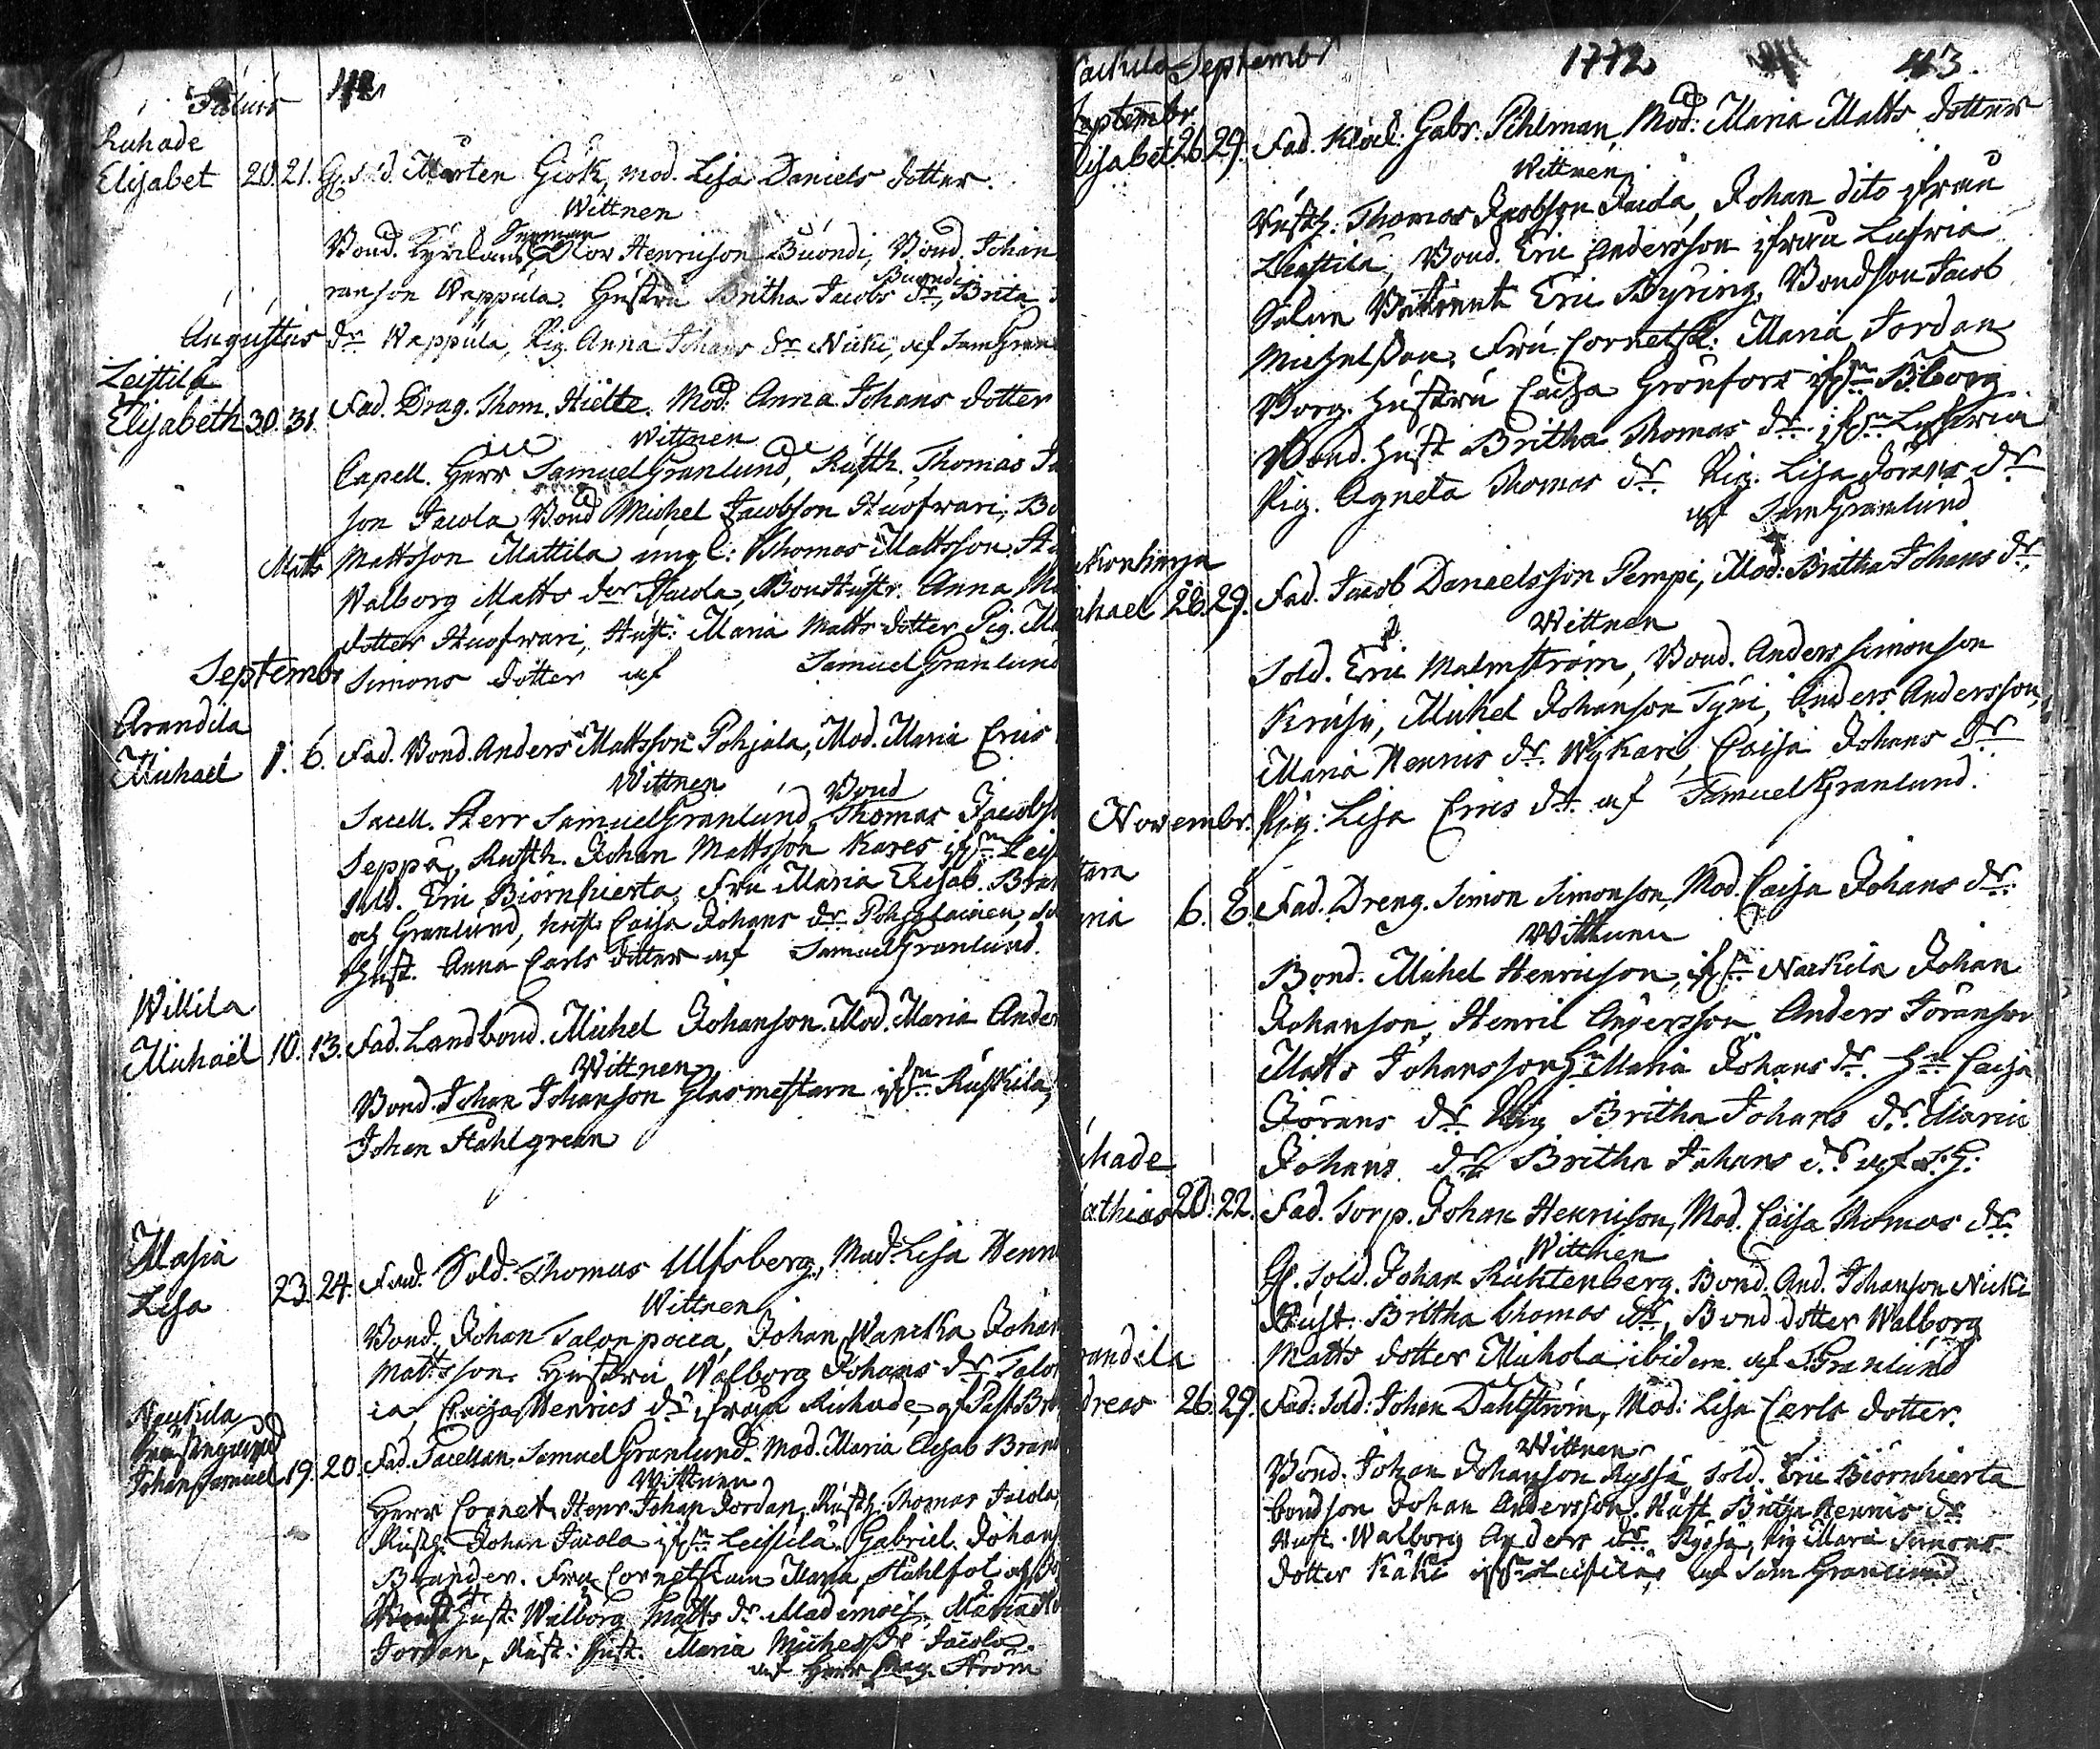 Julius 42
Ruhade
Elisabet 20. 21. Gl. Sold. Mårten Giök, mod. Lisa Daniels dotter.
Wittnen
Bond. Henricson Buondi, Bond. Johan
ranson Wappula. Hustru Britha Jacobs dr Buondi, Brita
Augustus dr Wappula, Pig. Anna Johans dr Nicki, af Sam Gran
Leistila
Elisabeth 30. 31. Fad. Drag. Thom. Hielte. Mod. Anna Johans dotter
Wittnen
Capell. Herr Samuel Granlund, Rusth. Thomas Ja
son Jacola Bond Michel Jacobson Huofwari, Bo
Matts Mattsson Mattila ungl: Thomas Mattsson
Walborg Matts dor Jacola, Bond Hustr. Anna Ma
dotter Huofwari, Hust: Maria Matts dotter Pig. Ma
Septembr Simons dotter af Samuel Granlund
Arandila
Michael 1. 6. Fad. Bond. Anders Mattsson Pohjala, Mod. Maria Erics
Wittnen
Sacell. Herr Samuel Granlund, Bond Thomas Jacobs
Seppä, Rusth. Johan Mattsson Kares ifrn Leis
Sold. Eric Biörnhierta, Fru Maria Elisab. Bran
och Granlund, hust. Caisa Johans dr Pohjalainen,
Hust. Anna Carls dotter af Samuel Granlund.
Willila
Michaël 10. 13. Fad. Landbond. Michel Johanson. Mod. Maria Ander
Wittnen
Bond. Johan Johanson Glasmestarn ifrn Ruskila,
Johan Stahlgreen
Masia
Lisa 23. 24. Fad. Sold. Thomas Ulfsberg, Mod. Lisa Henri
Wittnen
Bond. Johan Talonpoica, Johan Wanicka Johan
Mattsson. Hustru Walborg Johans dr Talon
ca, Caisa Henrics dr ifrån Ruhade, af Past Br
Nackila
Johan Samuel 19. 20. Fad. Sacellan. Samuel Granlund. Mod. Maria Elisab Brand
Wittnen
Herr Cornet Henr Johan Jordan, Rusth. Thomas Jacola,
Rusth. Johan Jacola ifrn Leistila. Gabriel Johan
Brander. Fru Cornetskan Maria Stahlfot och
Hust: Walborg Matts dr Mademois. Maria
Jordan, Rust: Hust. Maria Michels dr Jacola.
af Herr Mag. Ström
Nackila Septembr 1772 43
Septembr
Elisabet 26. 29. Fad. Klock: Gabr. Pihlman, Mod: Maria Matts dotter
Wittnen
Rusth. Thomas Jacobson Jacola, Johan dito ifrån
Leistila, Bond. Eric Andersson ifrån Lusria
Eric Byring. Bondson Jacob
Michelsson. Fru Cornetsk: Maria Jordan
Borg. Hustru Caisa Grönfors ifrn B:borg
Bond. Hust Britha Thomas dr ifrn Lusria
Pig. Agneta Thomas dr. Pig. Lisa Jörans dr
af Sam Granlund
konharja
Michael 28. 29. Fad. Jacob Danielsson Pempi, Mod: Britha Johans dr
Wittnen
Sold. Eric Malmström, Bond. Anders Simonson
Krusi, Michel Johanson Tyni, Anders Andersson,
Maria Henrics dr. Wykari, Caisa Johans dr
Novembr. Pig: Lisa Erics dr. af Samuel Granlund.
tara
ria 6. 8. Fad. Dreng. Simon Simonson, Mod. Caisa Johans dr.
Wittnen
Bond. Michel Henricson, ifrn Nackila Johan
Johanson, Henric Andersson Anders Jöranson
Matts Johansson Hu Maria Johans dr. Hu Caisa
Jörans dr Pig Britha Johans dr. Maria
Johans dr Britha Johans dr af S:G:
uhade
Mathias 20. 22. Fad. Torp. Johan Henricson, Mod. Caisa Thomas dr
Wittnen
Gl. Sold. Johan Richtenberg. Bond. And. Johanson Nicki
Hust. Britha Thomas dr, Bond dotter Walborg
Matts dotter Michola ibidem. af S Granlund
randila
dreas 26. 29. Fad: Sold: Johan Dahlström, Mod: Lisa Carls dotter.
Wittnen
Bond. Johan Johanson Ryssä Sold. Eric Biörnhierta
bondson Johan Andersson. Hust Britha Henrics dr
Hust. Walborg Anders dr Ryssä, Pig Maria Simons
dotter Käki ifrn Leistila, af Sam Granlund